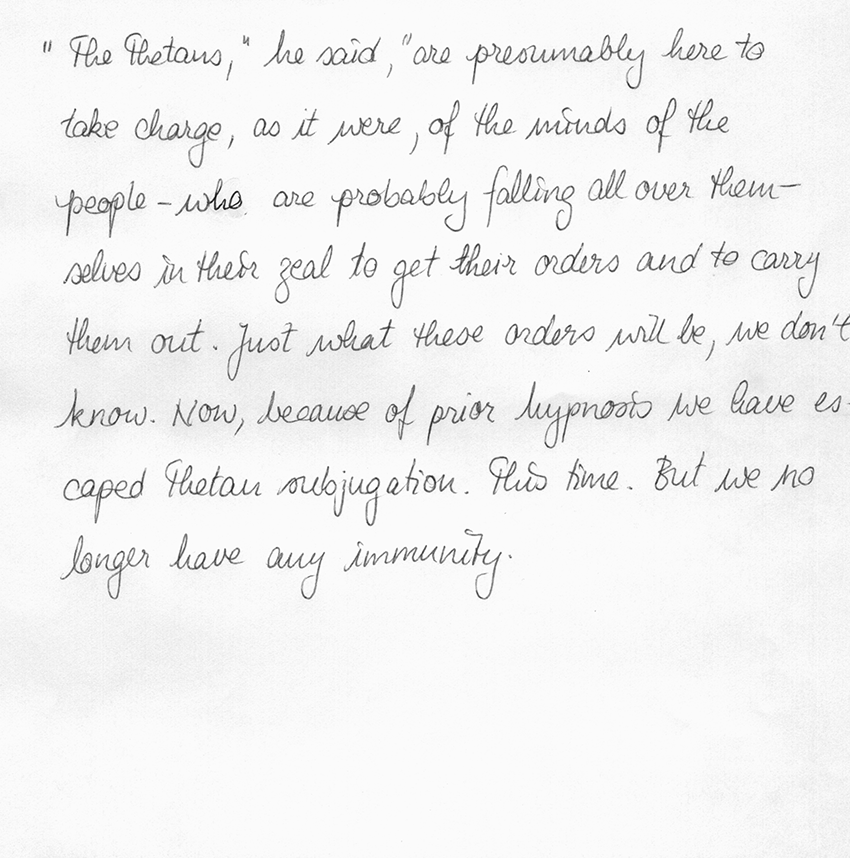 " The Thetans," he said, "are presumably here to
take charge, as it were, of the minds of the
people - who are probably falling all over them-
selves in their zeal to get their orders and to carry
them out. Just what these orders will be, we don't
know. Now, because of prior hypnosis we have es-
caped Thetan subjugation. This time. But we no
longer have any immunity.